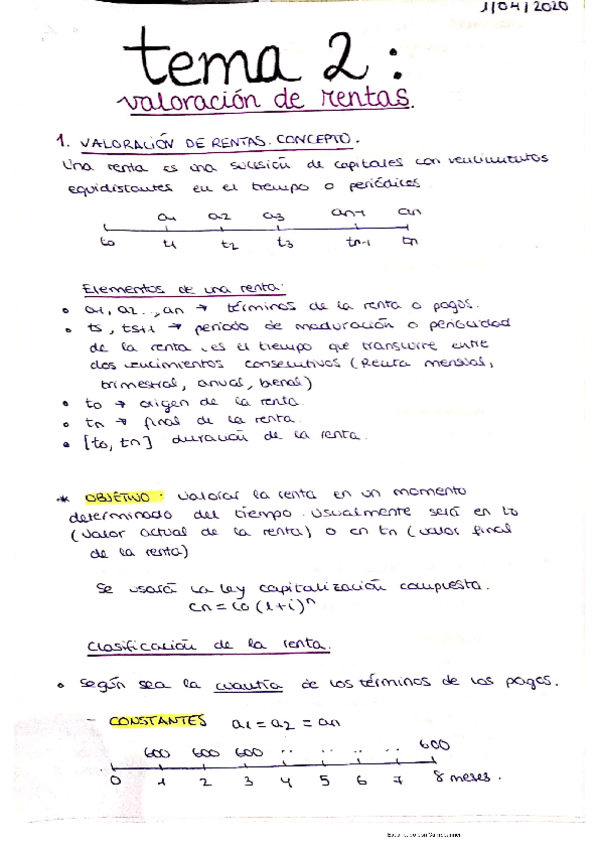 1/04/2020
tema 2:
valoración de rentas.
1. VALORACIÓN DE RENTAS. CONCEPTO.
Una renta es una sucesión de capitales con vencimientos
equidistantes en el tiempo o periódicos.
a1 a2 a3 an-1 an
to t1 t2 t3 tn-1 tn
Elementos de una renta:
• a1, a2..., an → términos de la renta o pagos.
• ts, ts+1 → periodo de maduración o periocidad
de la renta, es el tiempo que transcurre entre
dos vencimientos consecutivos (Renta mensual,
trimestral, anual, bienal)
• to → origen de la renta.
• tn → final de la renta.
• [to, tn] duración de la renta.
* OBJETIVO: valorar la renta en un momento
determinado del tiempo. Usualmente será en to
(valor actual de la renta) o en tn (valor final
de la renta)
Se usará la ley capitalización compuesta.
Cn = Co (1+i)^n
Clasificación de la renta.
• Según sea la cuantía de los términos de los pagos.
- CONSTANTES a1 = a2 = an
600 600 600 .. .. .. 600
0 1 2 3 4 5 6 7 8 meses.